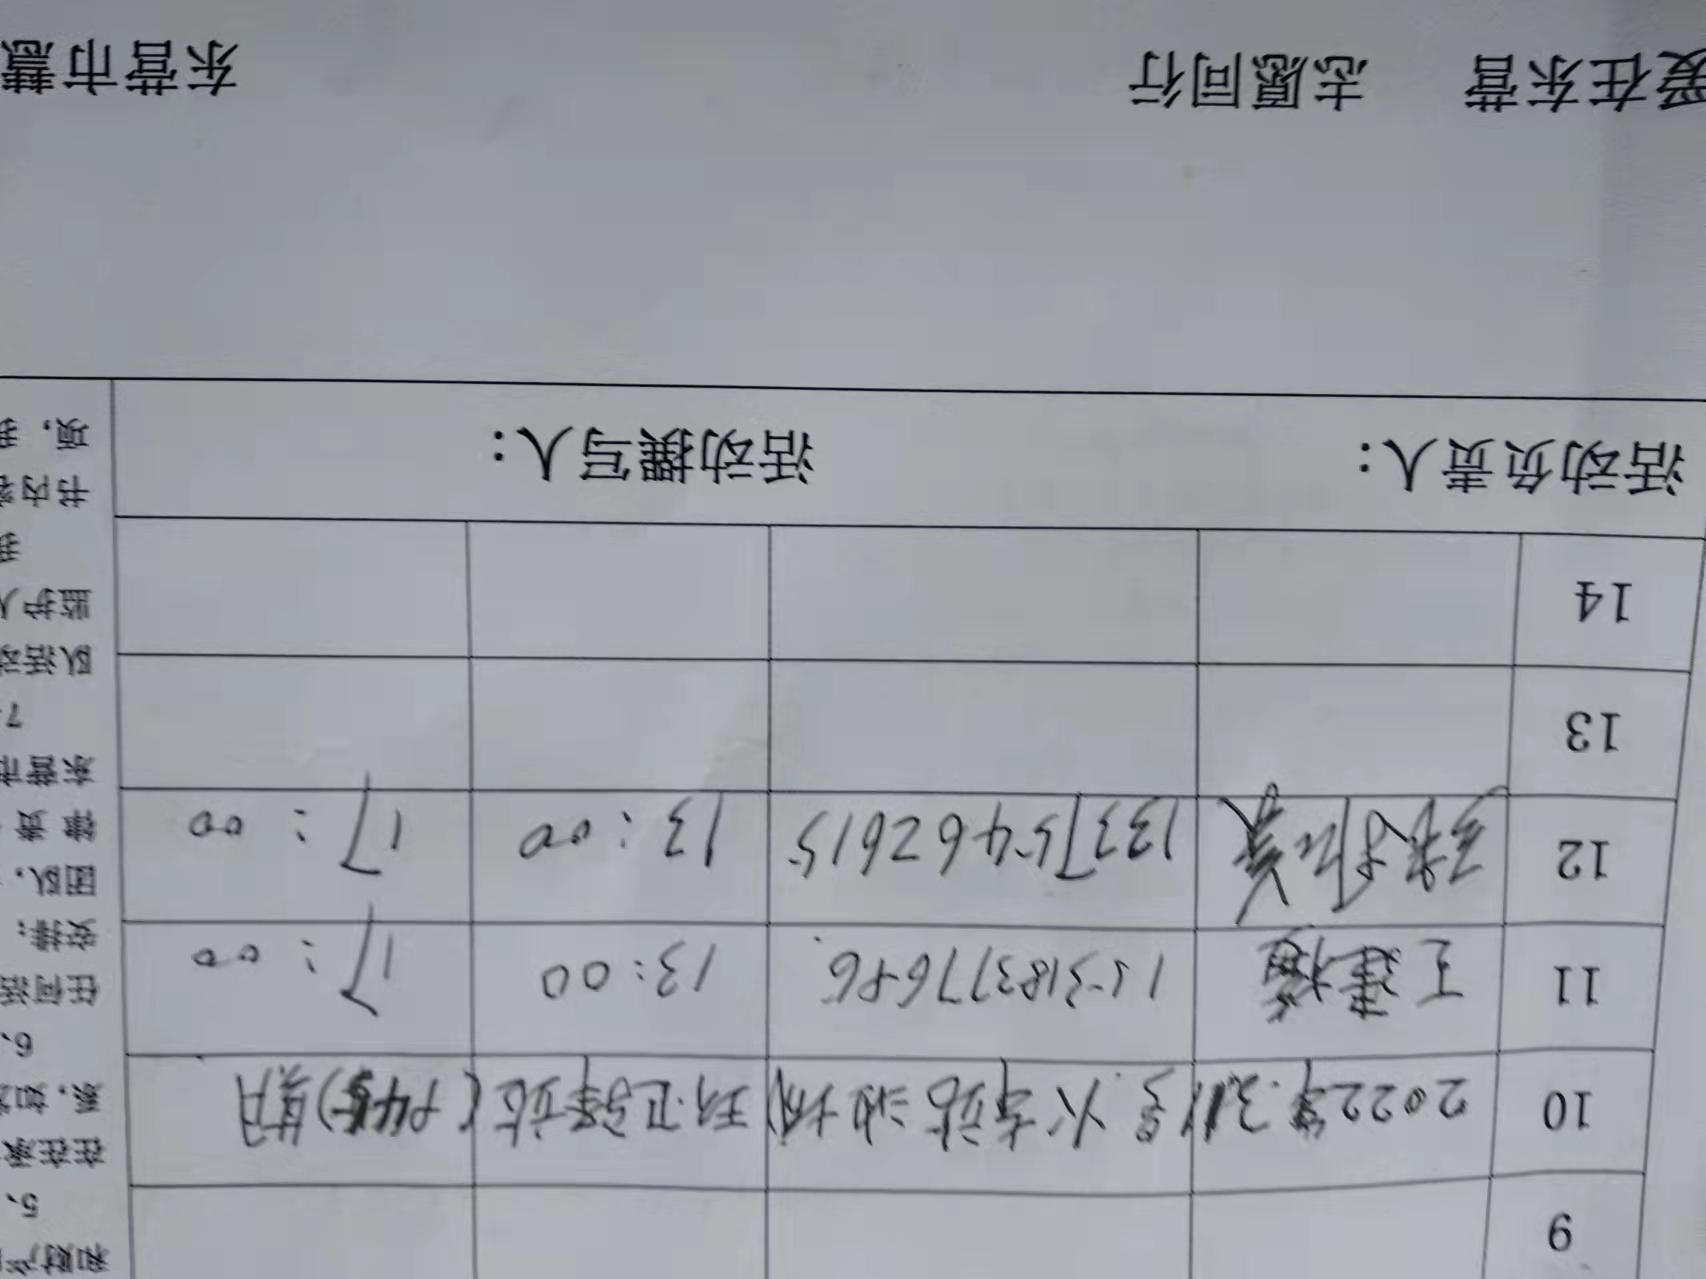 9
10 2022年3.11号 火车站油城 环卫驿站
11 王建 15318377686 13:00 17:00
12 13375462615 13:00 17:00
13
14
活动负责人： 活动撰写人：
爱在东营 志愿同行 东营市慧
和财产
5、
在在承
系，如
6、
任何活
安排；
团队，
律责
东营市
7
队活动
监护人
我
书内容
项，我